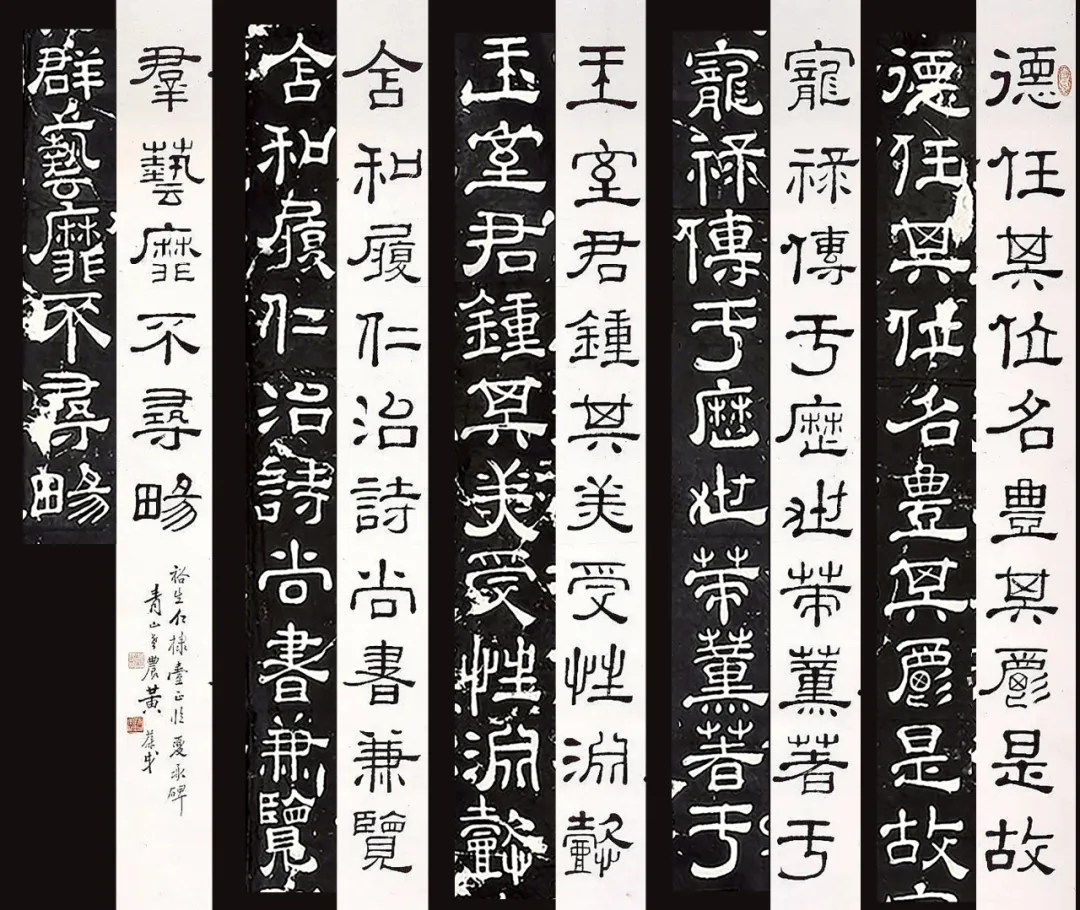 德任其位名豐其爵是故
德任其位名豐其爵是故
寵祿傳于歷世策薰著于
寵祿傳于歷世策薰著于
王室君鍾其美受性淵懿
王室君鍾其美受性淵懿
含和履仁治詩尚書兼覽
含和履仁治詩尚書兼覽
羣藝靡不尋畼
裕生仁棣臺正臨夏承碑
青山農黃葆戉
群藝靡不尋畼